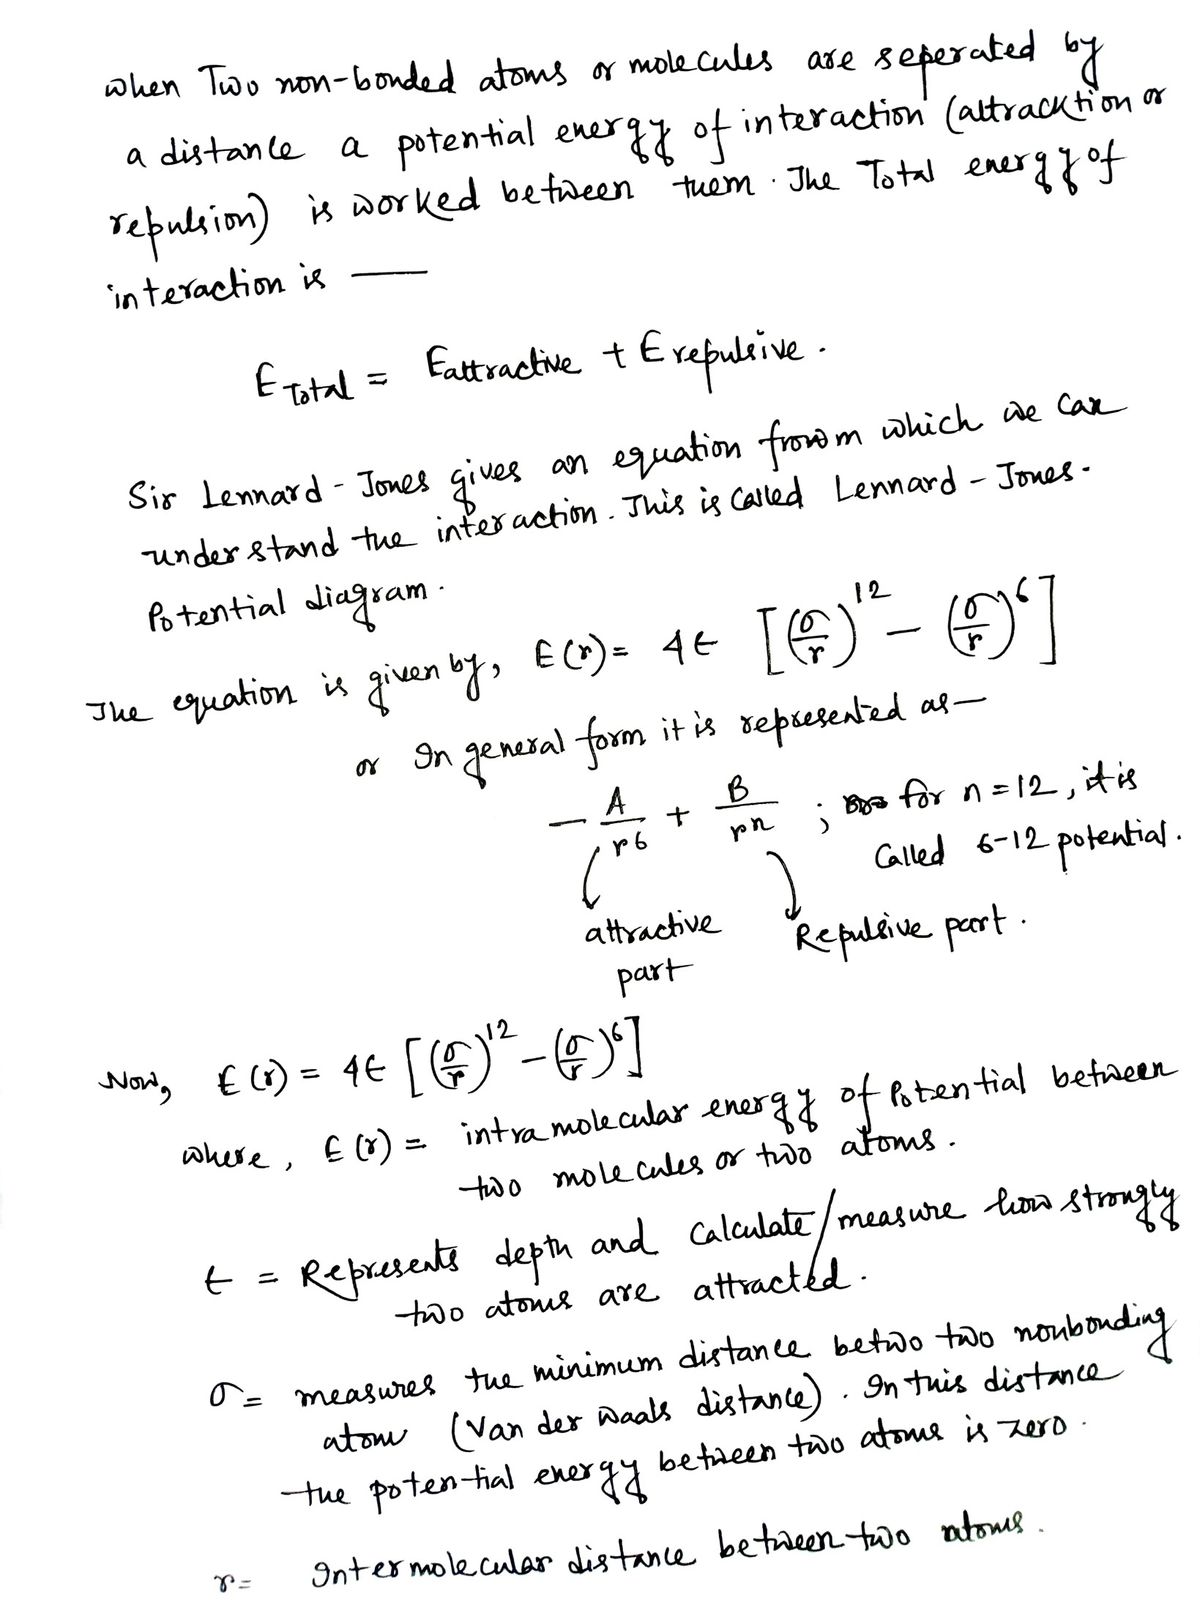 when Two non-bonded atoms or molecules are seperated by
a distance a potential energy of interaction (attracktion or
repulsion) is worked between them. The Total energy of
interaction is —
E Total = Eattractive + E repulsive.
Sir Lennard-Jones gives an equation from which we can
understand the interaction. This is Called Lennard-Jones-
Potential diagram.
The equation is given by, E(r) = 4ϵ [(σ/r)^12 − (σ/r)^6]
or In general form it is represented as —
− A/r^6 + B/r^n ; for n=12, it is
Called 6-12 potential.
attractive part
Repulsive part.
Now, E(r) = 4ϵ [(σ/r)^12 − (σ/r)^6]
where, E(r) = intramolecular energy of Potential between
two molecules or two atoms.
ϵ = Represents depth and Calculate/measure how strongly
two atoms are attracted.
σ = measures the minimum distance betwo two nonbonding
atom (Van der Waals distance). In this distance
the potential energy between two atoms is zero.
r = Intermolecular distance between two atoms.